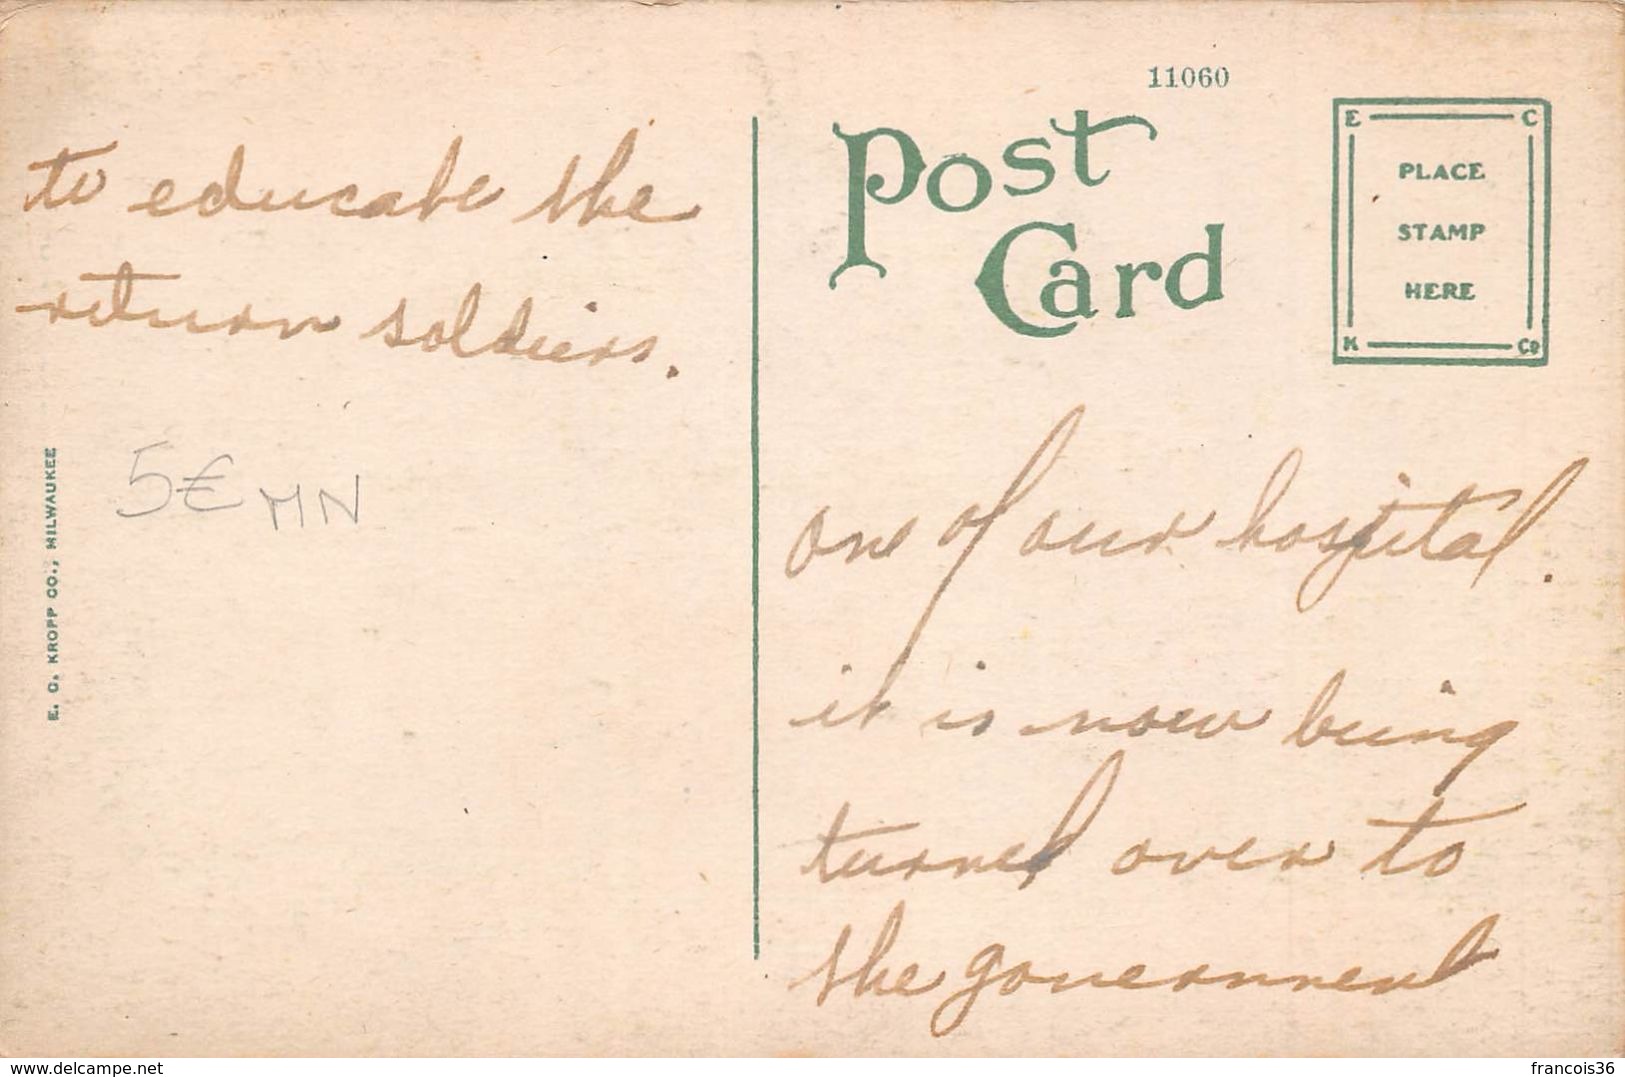 11060
Post
Card
E C
PLACE
STAMP
HERE
K Co
one of our hospital.
it is now being
turned over to
the government
to educate the
return soldiers.
5€ MN
E. C. KROPP CO., MILWAUKEE
www.delcampe.net
francois36